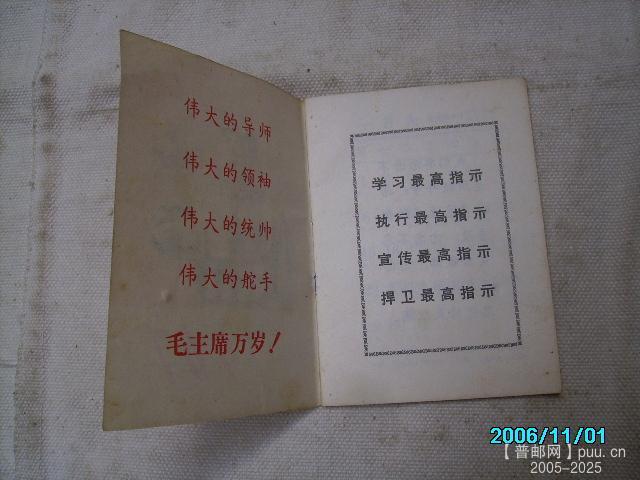 伟大的导师
伟大的领袖
伟大的统帅
伟大的舵手
毛主席万岁!
学习最高指示
执行最高指示
宣传最高指示
捍卫最高指示
2006/11/01
【普邮网】puu.cn
2005-2025